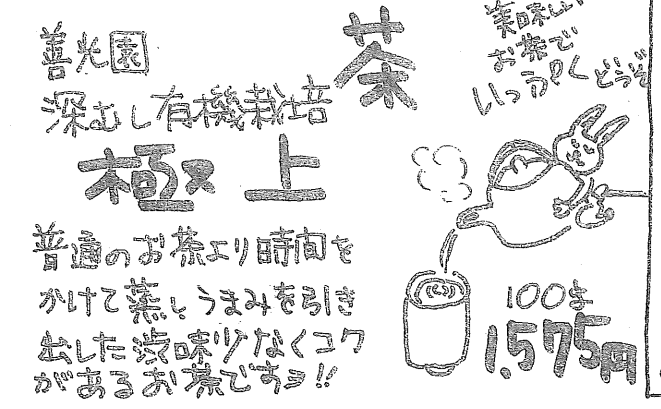 善光園
茶
深むし有機栽培
極上
普通のお茶より時間を
かけて蒸しうまみを引き
出した渋味少なくコク
があるお茶ですョ!!
美味しい
お茶で
いっぷくどうぞ
100g
1.575円